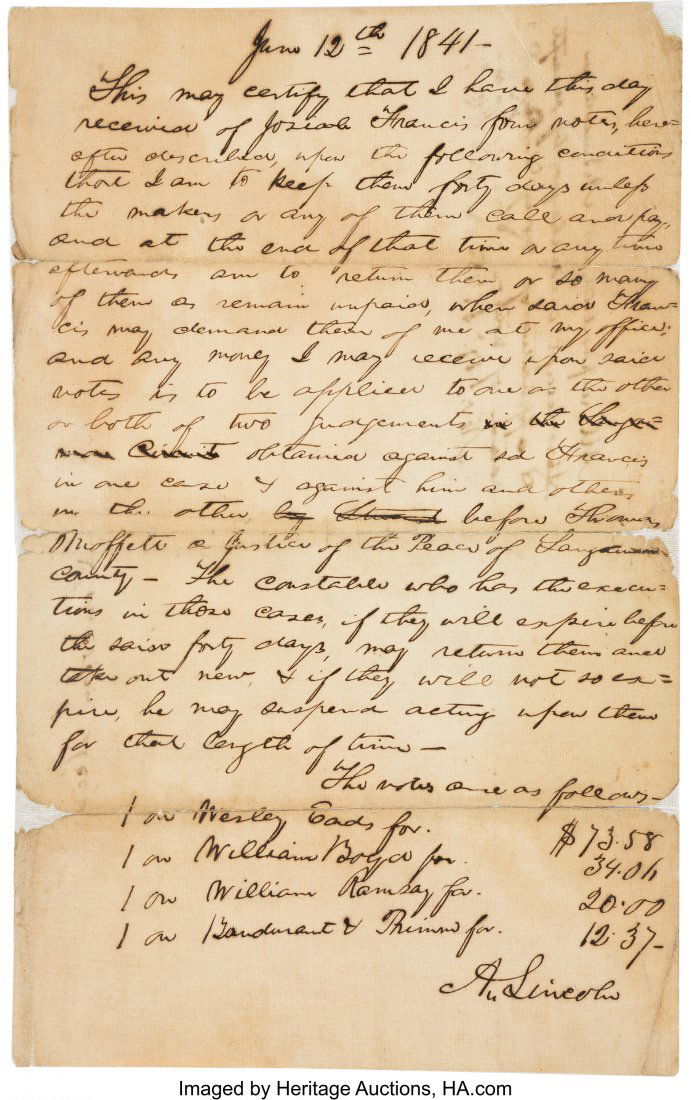 June 12th 1841-
This may certify that I have this day
received of Josiah Francis four notes, here=
after described, upon the following conditions
that I am to keep them forty days unless
the makers or any of them call and pay,
and at the end of that time or any time
afterwards am to return them or so many
of them as remain unpaid, when said Fran=
cis may demand them of me at my office;
and any money I may receive upon said
notes is to be applied to one or the other
or both of two judgements in the Sanga=
mon Circuit obtained against sd Francis
in one case & against him and others
in the other, by before Thomas
Moffett a Justice of the Peace of Sangamon
County- The constable who has the execu=
tions in those cases, if they will expire before
the said forty days, may return them and
take out new, & if they will not so ex=
pire, he may suspend acting upon them
for that length of time-
The notes are as follows-
1 on Wesley Eads for. $73.58
1 on William Boyd for. 34.06
1 on William Ramsay for. 20.00
1 on Bondurant & Primm for. 12.37-
A. Lincoln
Imaged by Heritage Auctions, HA.com